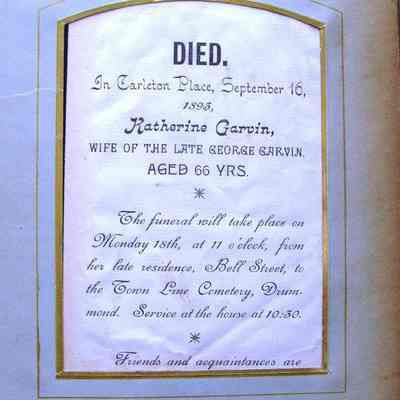 DIED.
In Carleton Place, September 16,
1893,
Katherine Garvin,
WIFE OF THE LATE GEORGE GARVIN,
AGED 66 YRS.
The funeral will take place on
Monday 18th, at 11 o'clock, from
her late residence, Bell Street, to
the Town Line Cemetery, Drum-
mond. Service at the house at 10:30.
Friends and acquaintances are